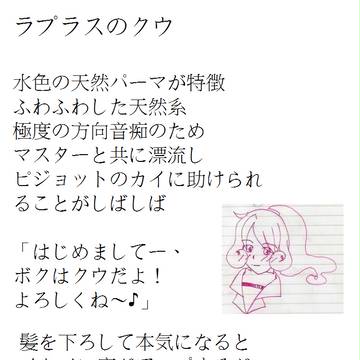 ラプラスのクウ
水色の天然パーマが特徴
ふわふわした天然系
極度の方向音痴のため
マスターと共に漂流し
ピジョットのカイに助けられ
ることがしばしば
「はじめましてー、
ボクはクウだよ！
よろしくね～♪」
髪を下ろして本気になると